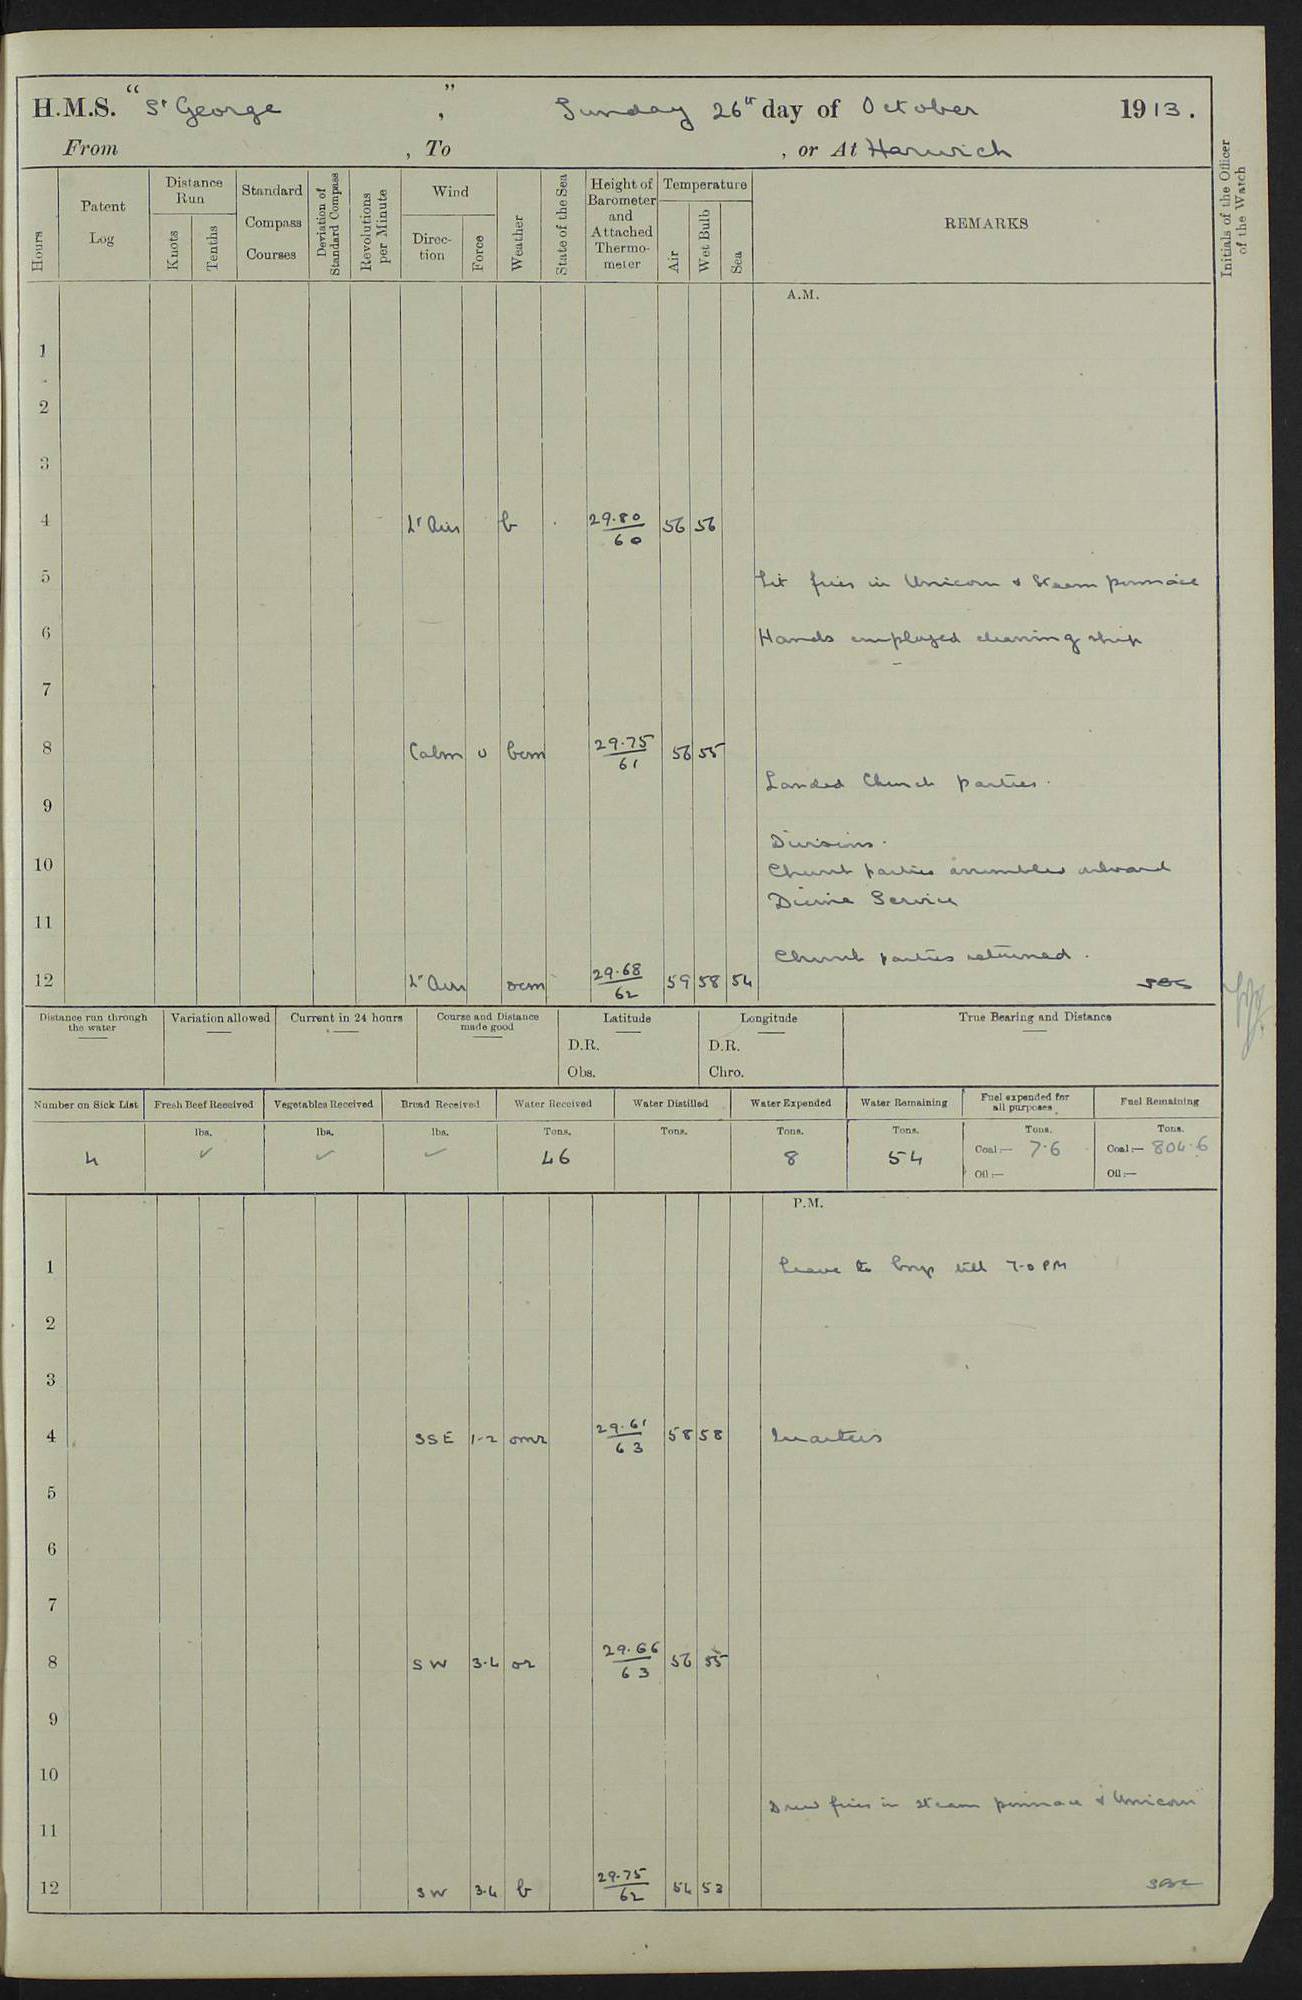 H.M.S. "St George", Sunday 26th day of October 1913.
From , To , or At Harwich
Hours
Patent Log
Distance Run
Knots
Tenths
Standard Compass Courses
Deviation of Standard Compass
Revolutions per Minute
Wind
Direction
Force
Weather
State of the Sea
Height of Barometer and Attached Thermometer
Temperature
Air
Wet Bulb
Sea
REMARKS
Initials of the Officer of the Watch
A.M.
1
2
3
4 Lt Airs b 29.80 60 56 56
5 Lit fires in Unicorn & Steam pinnace
6 Hands employed cleaning ship
7
8 Calm 0 bcm 29.75 61 56 55
Landed Church parties.
9
Divisions.
10 Church parties assembled onboard
Divine Service
11
Church parties returned.
12 Lt Airs ocm 29.68 62 59 58 54
Distance run through the water
Variation allowed
Current in 24 hours
Course and Distance made good
Latitude
D.R.
Obs.
Longitude
D.R.
Chro.
True Bearing and Distance
Number on Sick List
Fresh Beef Received
Vegetables Received
Bread Received
Water Received
Water Distilled
Water Expended
Water Remaining
Fuel expended for all purposes
Fuel Remaining
lbs. lbs. lbs. Tons. Tons. Tons. Tons. Tons. Tons.
4 ✓ ✓ ✓ 46 8 54 Coal:— 7.6 Coal:— 804.6
Oil:— Oil:—
P.M.
1 Leave to boys till 7-0 PM
2
3
4 SSE 1-2 omr 29.61 63 58 58 Quarters
5
6
7
8 SW 3.4 or 29.66 63 56 55
9
10
Drew fires in steam pinnace & Unicorn
11
12 SW 3.4 b 29.75 62 54 53